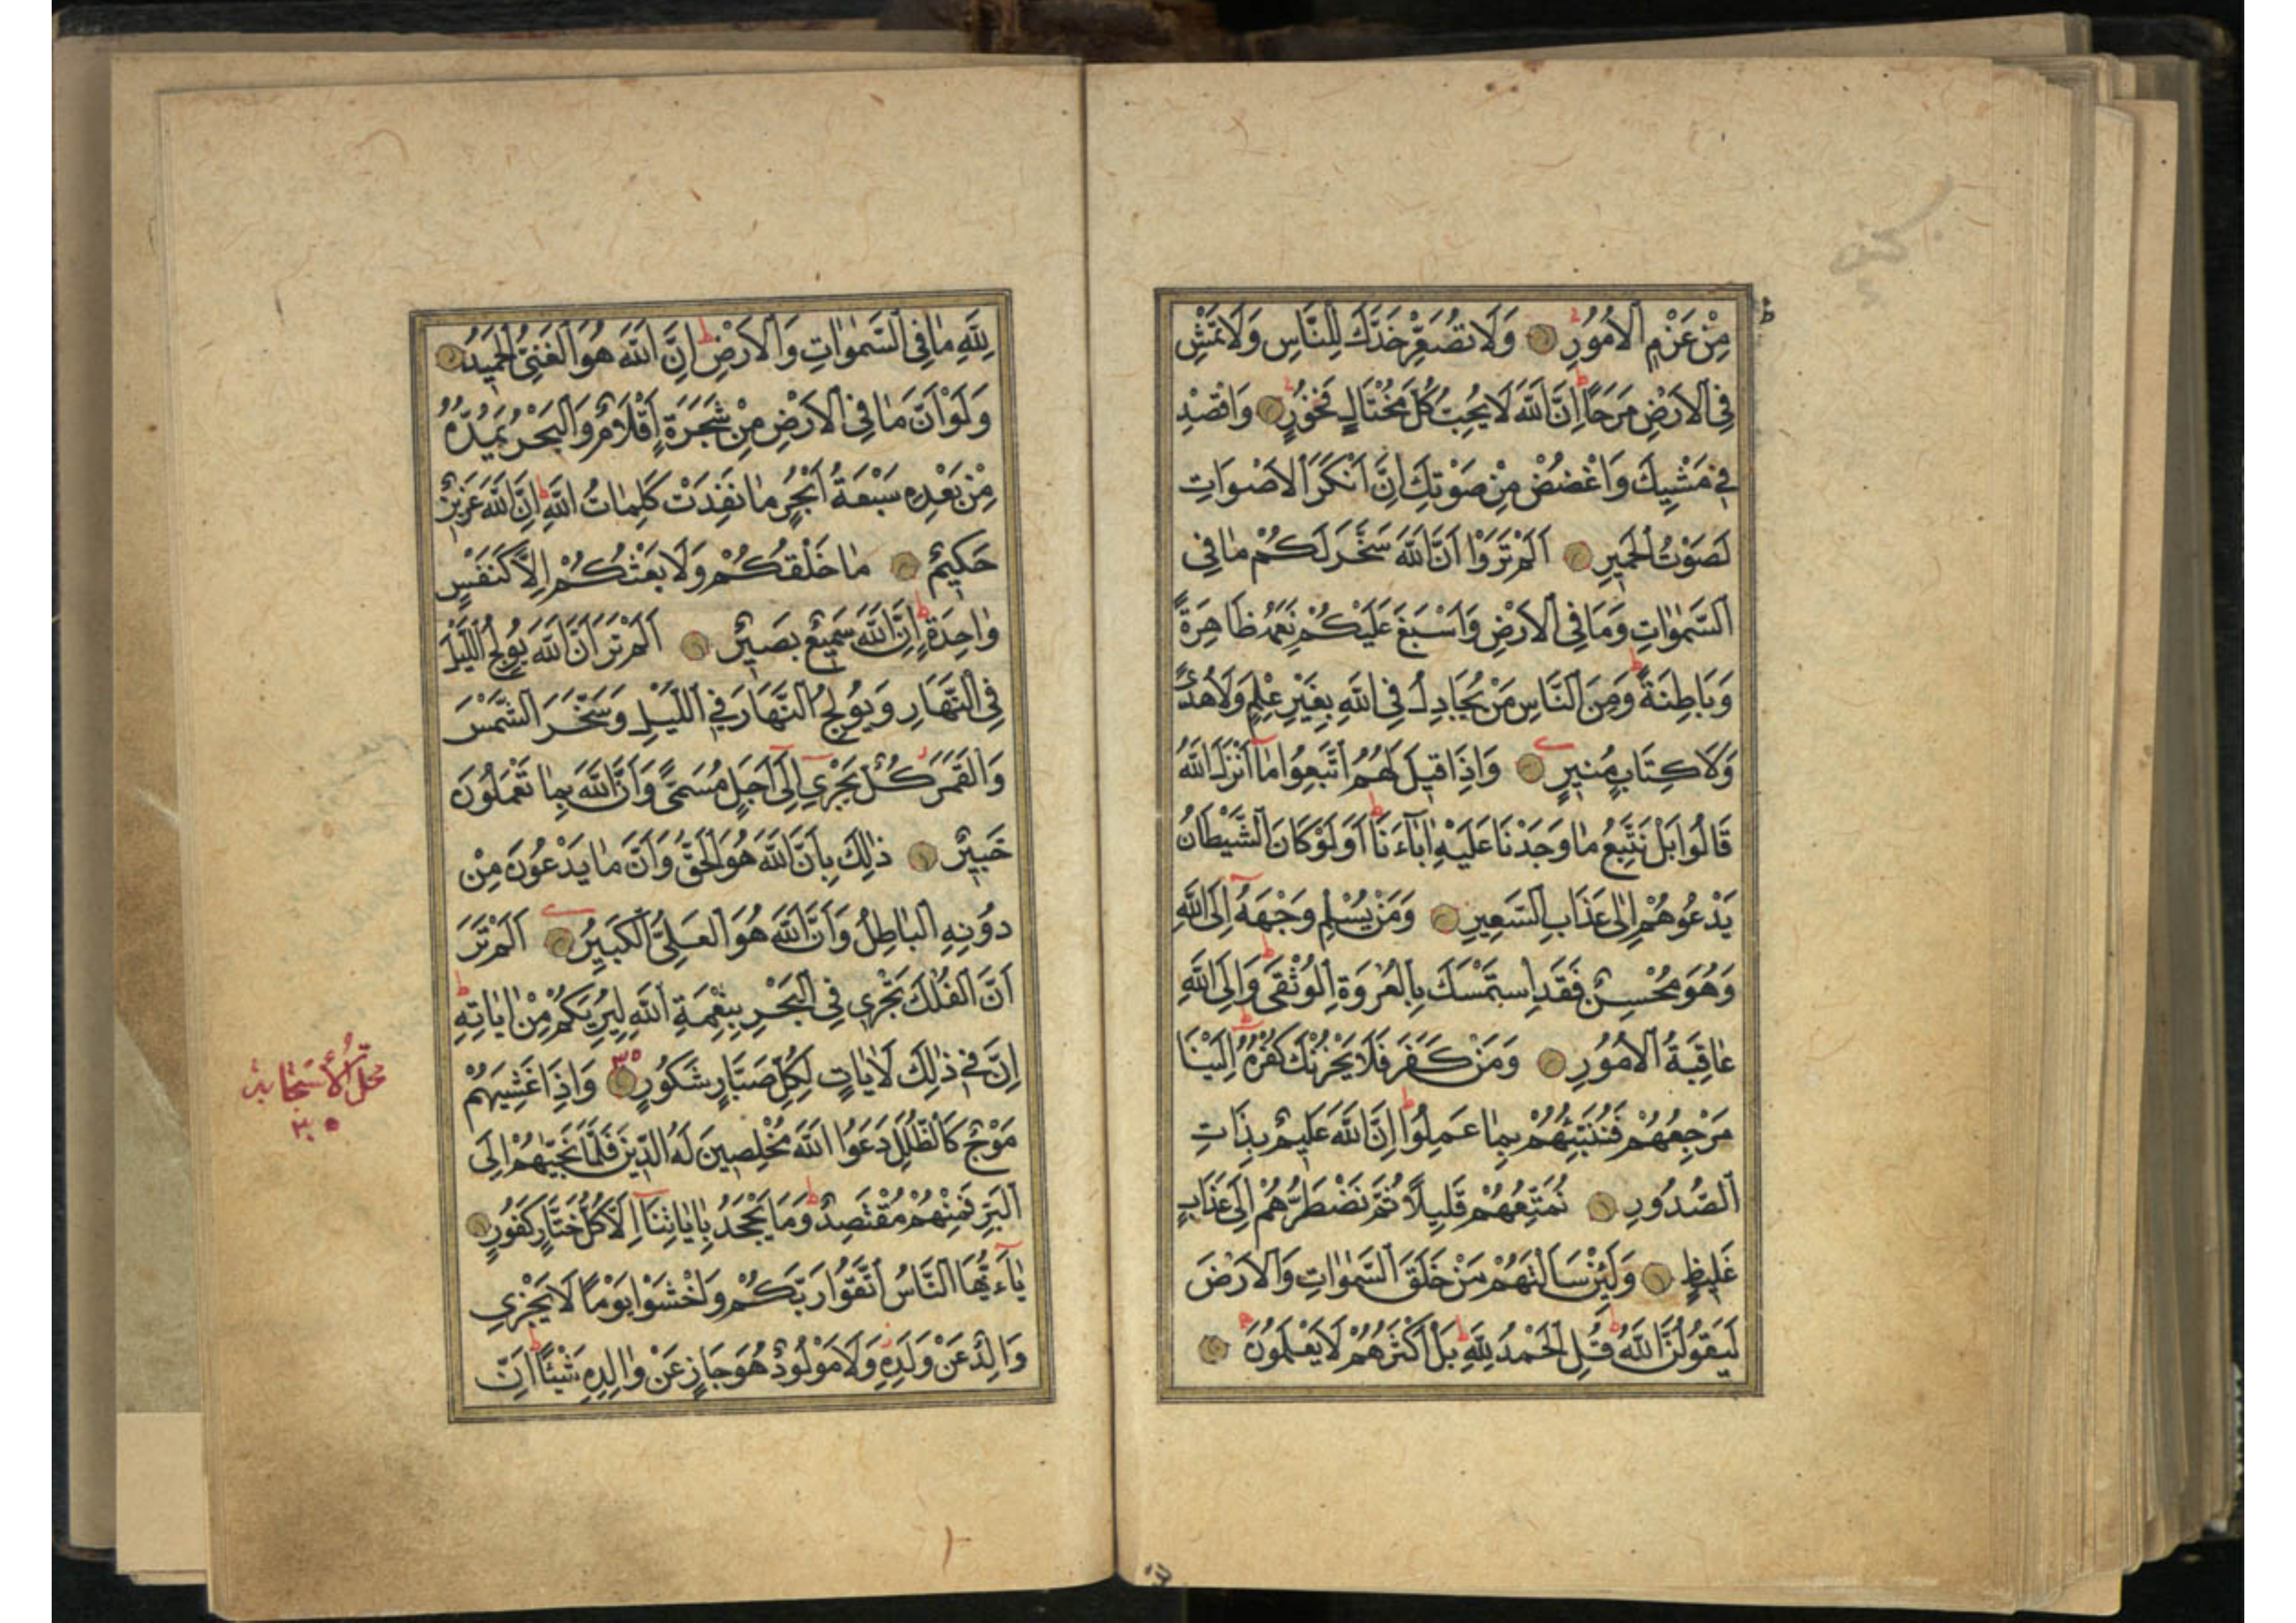 مِنْ عَزْمِ الْاُمُورِ وَلَا تُصَعِّرْ خَدَّكَ لِلنَّاسِ وَلَا تَمْشِ
فِى الْاَرْضِ مَرَحًا اِنَّ اللّٰهَ لَا يُحِبُّ كُلَّ مُخْتَالٍ فَخُورٍ وَاقْصِدْ
فِى مَشْيِكَ وَاغْضُضْ مِنْ صَوْتِكَ اِنَّ اَنْكَرَ الْاَصْوَاتِ
لَصَوْتُ الْحَمِيرِ اَلَمْ تَرَوْا اَنَّ اللّٰهَ سَخَّرَ لَكُمْ مَا فِى
السَّمٰوَاتِ وَمَا فِى الْاَرْضِ وَاَسْبَغَ عَلَيْكُمْ نِعَمَهُ ظَاهِرَةً
وَبَاطِنَةً وَمِنَ النَّاسِ مَنْ يُجَادِلُ فِى اللّٰهِ بِغَيْرِ عِلْمٍ وَلَا هُدًى
وَلَا كِتَابٍ مُنِيرٍ وَاِذَا قِيلَ لَهُمُ اتَّبِعُوا مَا اَنْزَلَ اللّٰهُ
قَالُوا بَلْ نَتَّبِعُ مَا وَجَدْنَا عَلَيْهِ اٰبَآءَنَا اَوَلَوْ كَانَ الشَّيْطَانُ
يَدْعُوهُمْ اِلٰى عَذَابِ السَّعِيرِ وَمَنْ يُسْلِمْ وَجْهَهُ اِلَى اللّٰهِ
وَهُوَ مُحْسِنٌ فَقَدِ اسْتَمْسَكَ بِالْعُرْوَةِ الْوُثْقٰى وَاِلَى اللّٰهِ
عَاقِبَةُ الْاُمُورِ وَمَنْ كَفَرَ فَلَا يَحْزُنْكَ كُفْرُهُ اِلَيْنَا
مَرْجِعُهُمْ فَنُنَبِّئُهُمْ بِمَا عَمِلُوا اِنَّ اللّٰهَ عَلِيمٌ بِذَاتِ
الصُّدُورِ نُمَتِّعُهُمْ قَلِيلًا ثُمَّ نَضْطَرُّهُمْ اِلٰى عَذَابٍ
غَلِيظٍ وَلَئِنْ سَاَلْتَهُمْ مَنْ خَلَقَ السَّمٰوَاتِ وَالْاَرْضَ
لَيَقُولُنَّ اللّٰهُ قُلِ الْحَمْدُ لِلّٰهِ بَلْ اَكْثَرُهُمْ لَا يَعْلَمُونَ
لِلّٰهِ مَا فِى السَّمٰوَاتِ وَالْاَرْضِ اِنَّ اللّٰهَ هُوَ الْغَنِىُّ الْحَمِيدُ
وَلَوْ اَنَّ مَا فِى الْاَرْضِ مِنْ شَجَرَةٍ اَقْلَامٌ وَالْبَحْرُ يَمُدُّهُ
مِنْ بَعْدِهِ سَبْعَةُ اَبْحُرٍ مَا نَفِدَتْ كَلِمَاتُ اللّٰهِ اِنَّ اللّٰهَ عَزِيزٌ
حَكِيمٌ مَا خَلْقُكُمْ وَلَا بَعْثُكُمْ اِلَّا كَنَفْسٍ
وَاحِدَةٍ اِنَّ اللّٰهَ سَمِيعٌ بَصِيرٌ اَلَمْ تَرَ اَنَّ اللّٰهَ يُولِجُ اللَّيْلَ
فِى النَّهَارِ وَيُولِجُ النَّهَارَ فِى اللَّيْلِ وَسَخَّرَ الشَّمْسَ
وَالْقَمَرَ كُلٌّ يَجْرِى اِلٰى اَجَلٍ مُسَمًّى وَاَنَّ اللّٰهَ بِمَا تَعْمَلُونَ
خَبِيرٌ ذٰلِكَ بِاَنَّ اللّٰهَ هُوَ الْحَقُّ وَاَنَّ مَا يَدْعُونَ مِنْ
دُونِهِ الْبَاطِلُ وَاَنَّ اللّٰهَ هُوَ الْعَلِىُّ الْكَبِيرُ اَلَمْ تَرَ
اَنَّ الْفُلْكَ تَجْرِى فِى الْبَحْرِ بِنِعْمَةِ اللّٰهِ لِيُرِيَكُمْ مِنْ اٰيَاتِهِ
اِنَّ فِى ذٰلِكَ لَاٰيَاتٍ لِكُلِّ صَبَّارٍ شَكُورٍ وَاِذَا غَشِيَهُمْ
مَوْجٌ كَالظُّلَلِ دَعَوُا اللّٰهَ مُخْلِصِينَ لَهُ الدِّينَ فَلَمَّا نَجّٰيهُمْ اِلَى
الْبَرِّ فَمِنْهُمْ مُقْتَصِدٌ وَمَا يَجْحَدُ بِاٰيَاتِنَا اِلَّا كُلُّ خَتَّارٍ كَفُورٍ
يَآ ءَيُّهَا النَّاسُ اتَّقُوا رَبَّكُمْ وَاخْشَوْا يَوْمًا لَا يَجْزِى
وَالِدٌ عَنْ وَلَدِهِ وَلَا مَوْلُودٌ هُوَ جَازٍ عَنْ وَالِدِهِ شَيْئًا اِنَّ